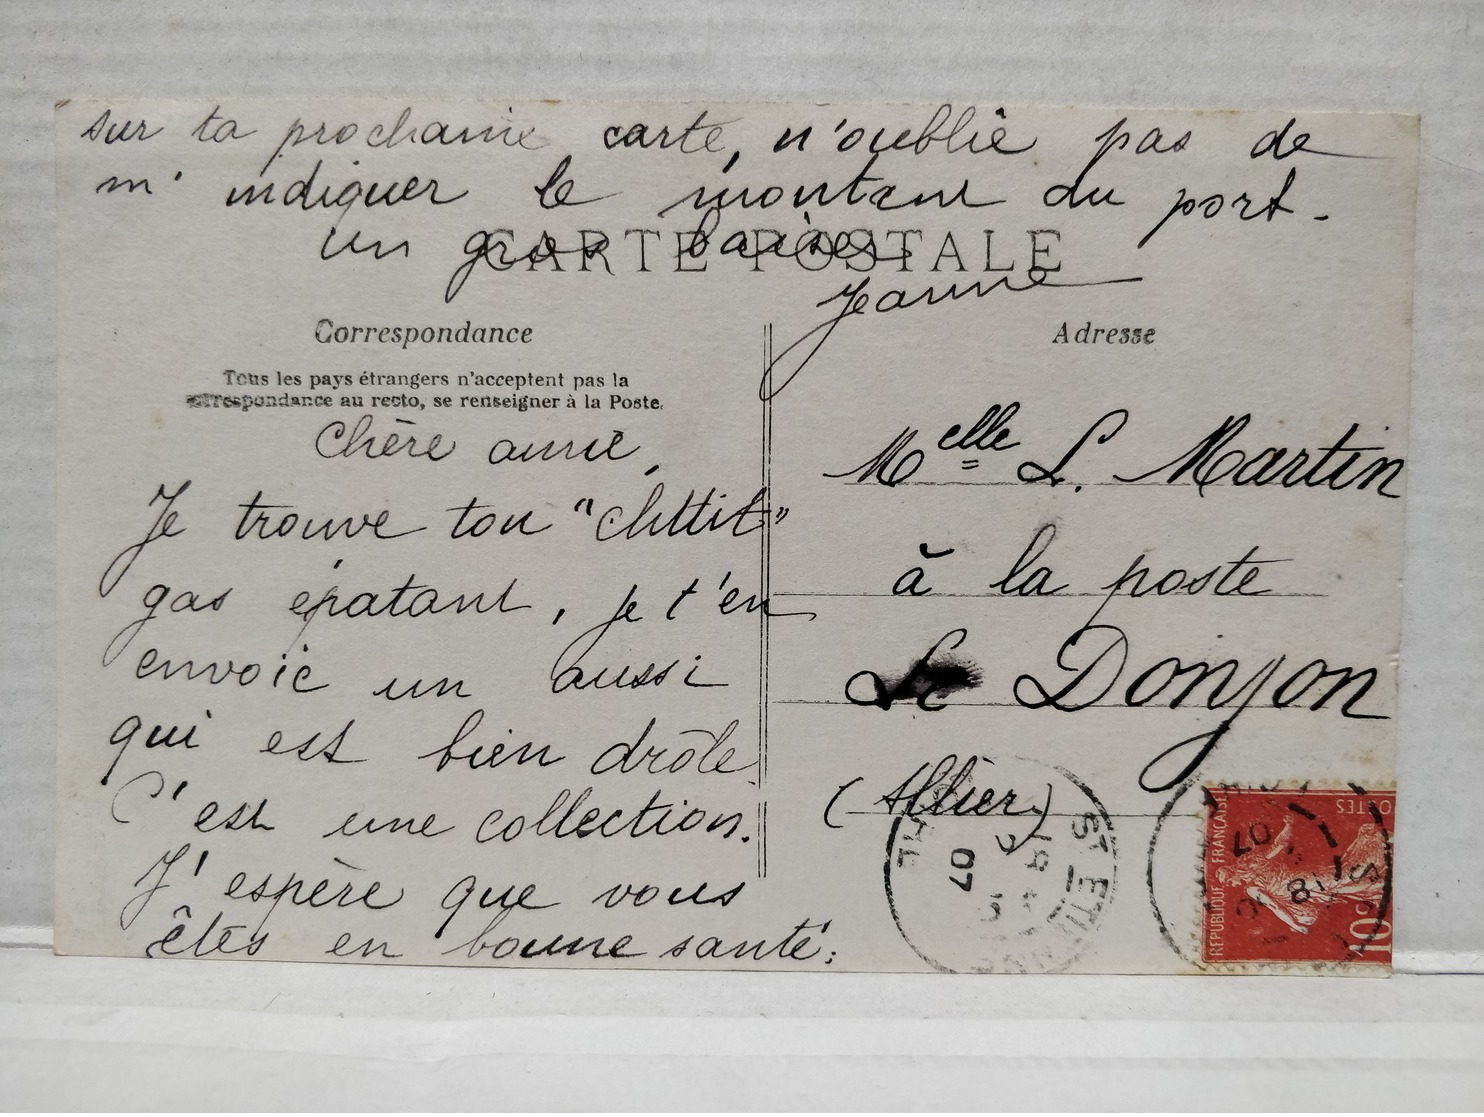 sur ta prochaine carte, n'oublie pas de
m'indiquer le montant du port.
un gros baiser
Jeanne
CARTE POSTALE
Correspondance
Tous les pays étrangers n'acceptent pas la
correspondance au recto, se renseigner à la Poste.
Chère amie,
Je trouve ton "chttit"
gas épatant, je t'en
envoie un aussi
qui est bien drôle
C'est une collection.
J'espère que vous
êtes en bonne santé.
Adresse
Melle L. Martin
à la poste
Le Donjon
(Allier)
ST ETIENNE
07
REPUBLIQUE FRANÇAISE
POSTES
10c
07